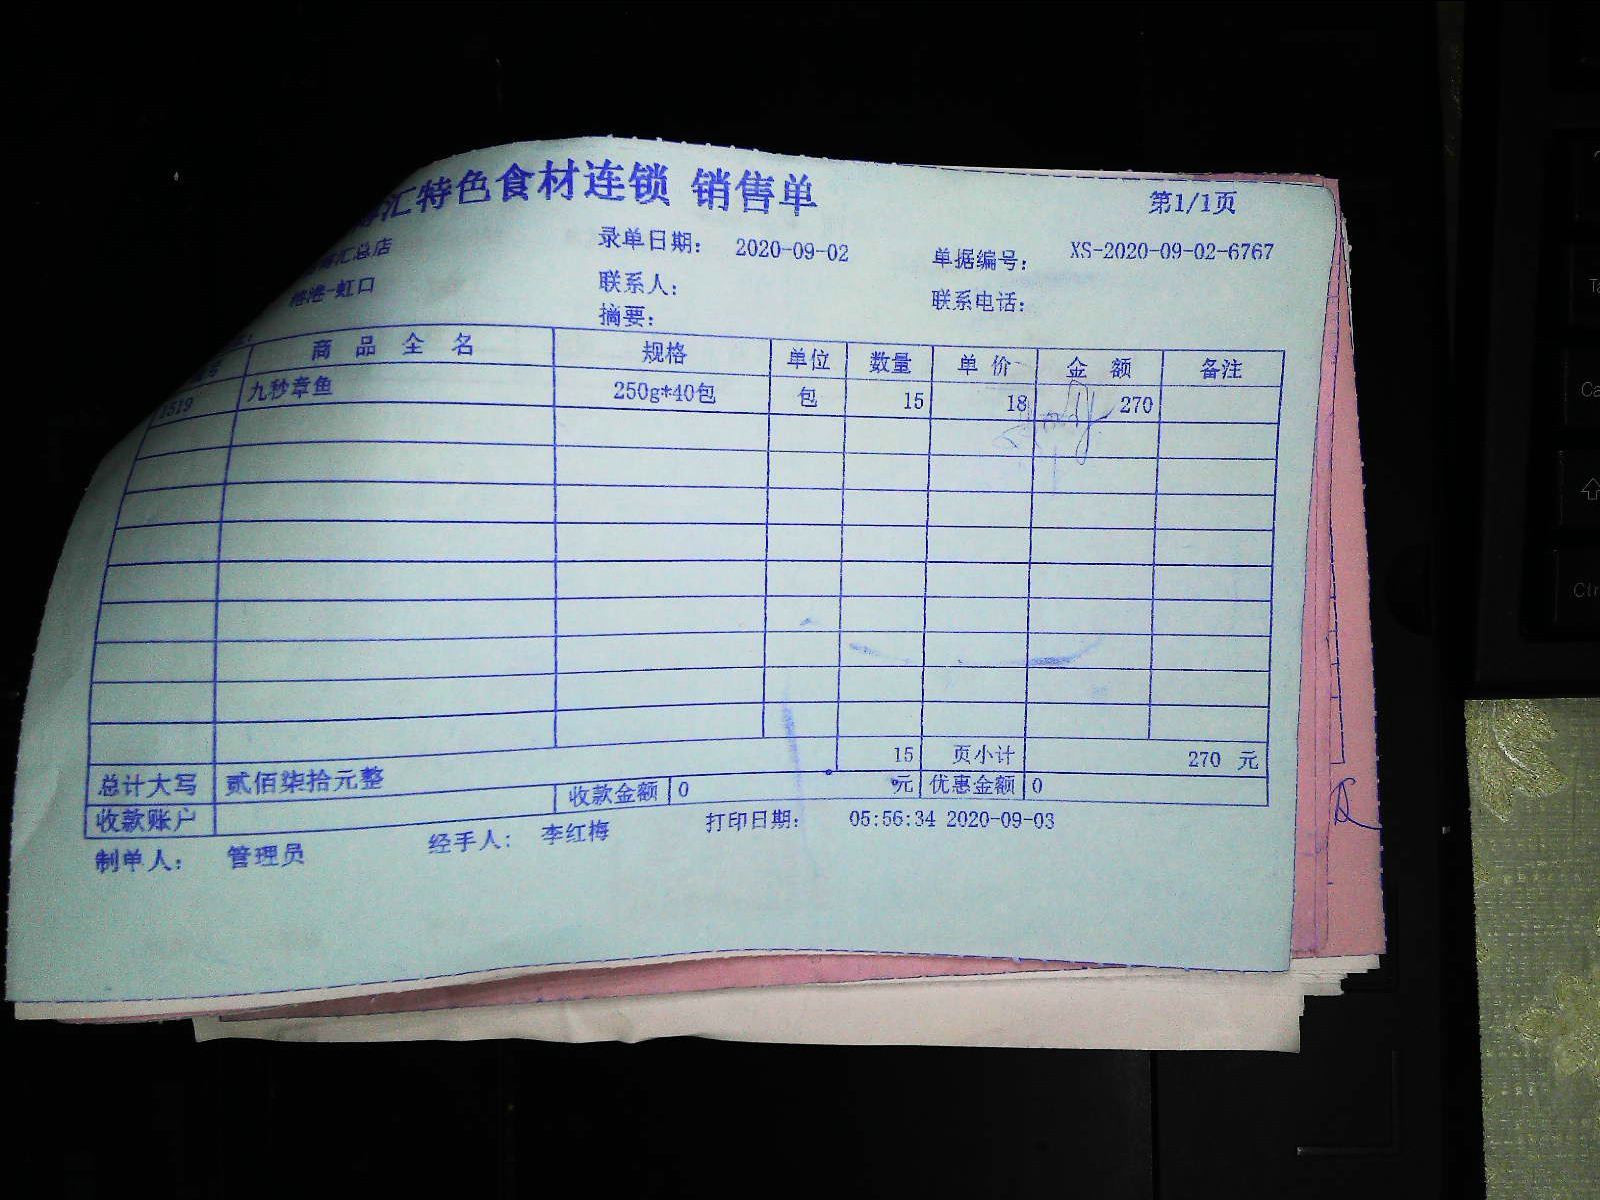 汇特色食材连锁 销售单 第1/1页
汇总店 录单日期: 2020-09-02 单据编号: XS-2020-09-02-6767
港-虹口 联系人: 联系电话:
摘要:
商品全名 规格 单位 数量 单价 金额 备注
1519 九秒章鱼 250g*40包 包 15 18 270
15 页小计 270 元
总计大写 贰佰柒拾元整
收款账户 收款金额 0 元 优惠金额 0
制单人: 管理员 经手人: 李红梅 打印日期: 05:56:34 2020-09-03